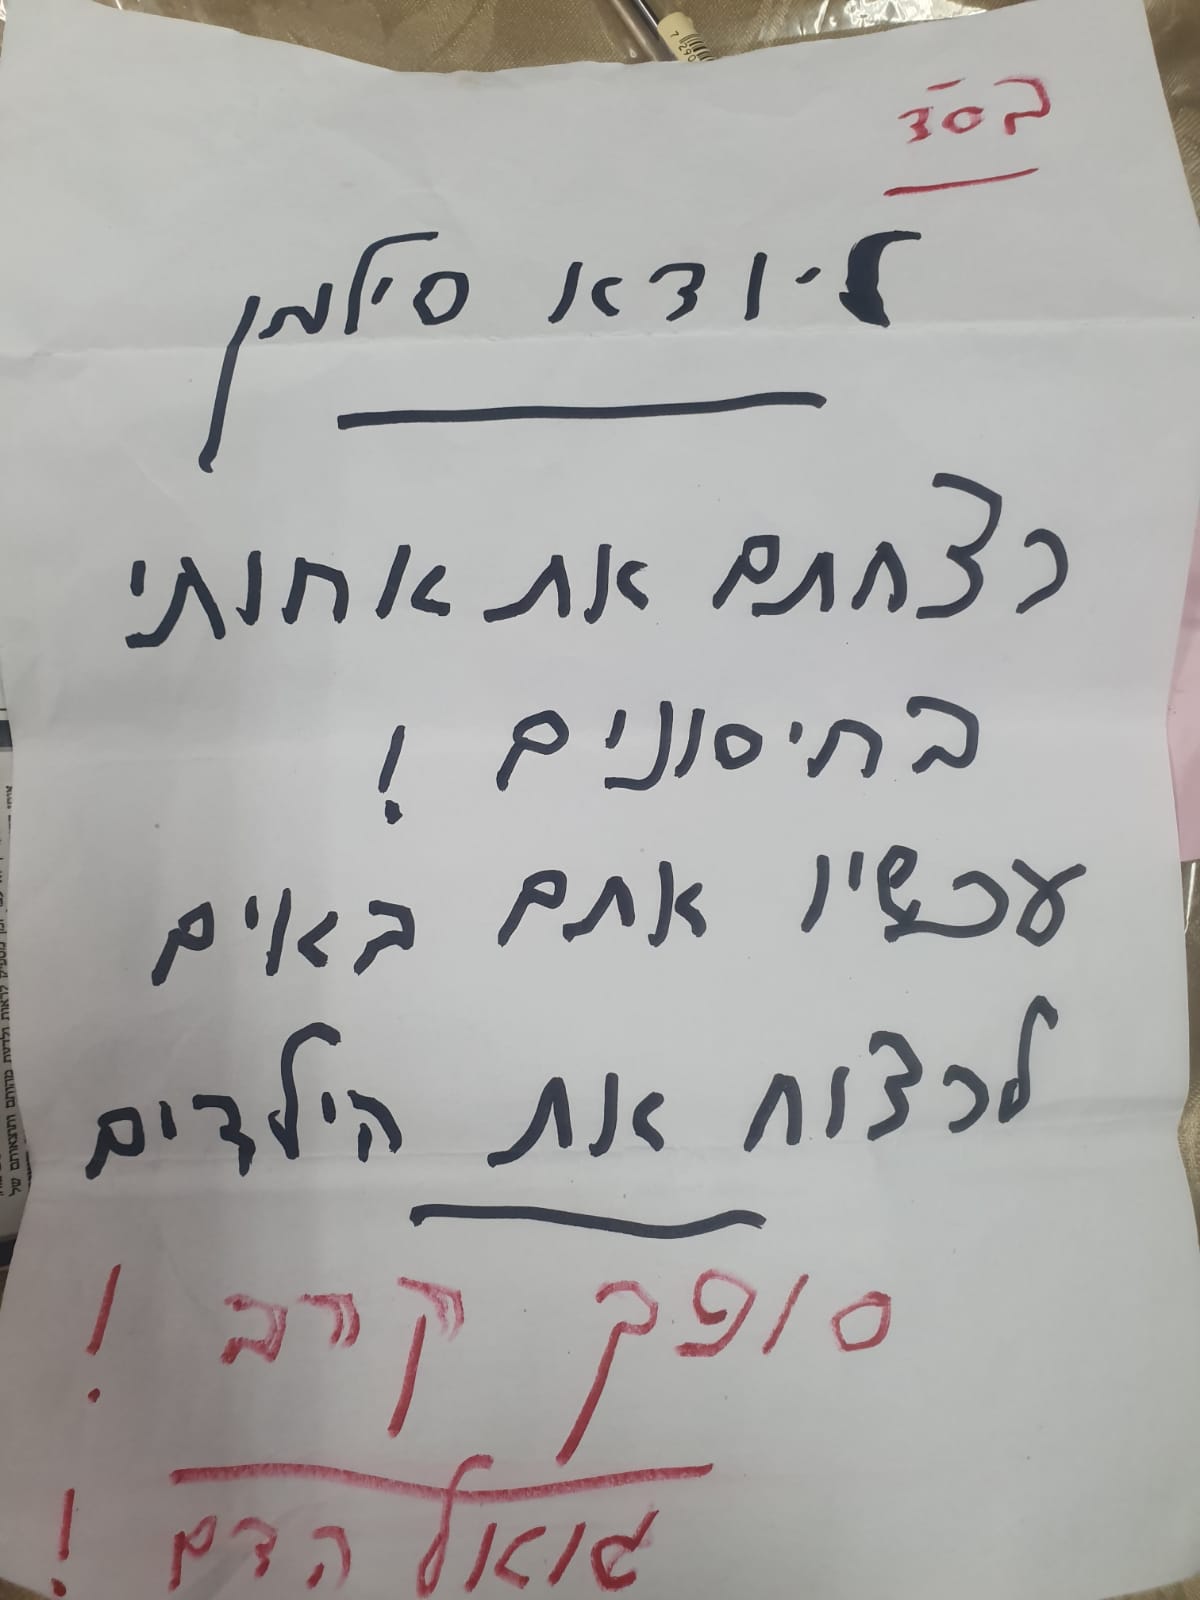 בס"ד
ליודא סילמן
רצחתם את אחותי
בחיסונים !
עכשיו אתם באים
לרצוח את הילדים
סופך קרב !
גואל הדם !